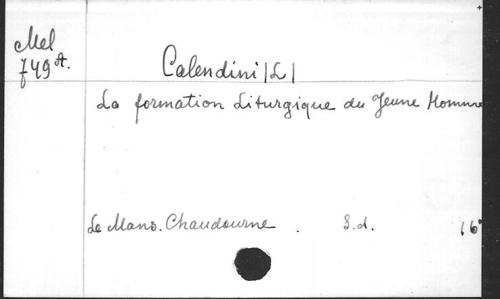 Mel
749 A.
Calendini (L)
La formation Liturgique du Jeune Homme
Le Mans. Chaudourne . S.d. 16°